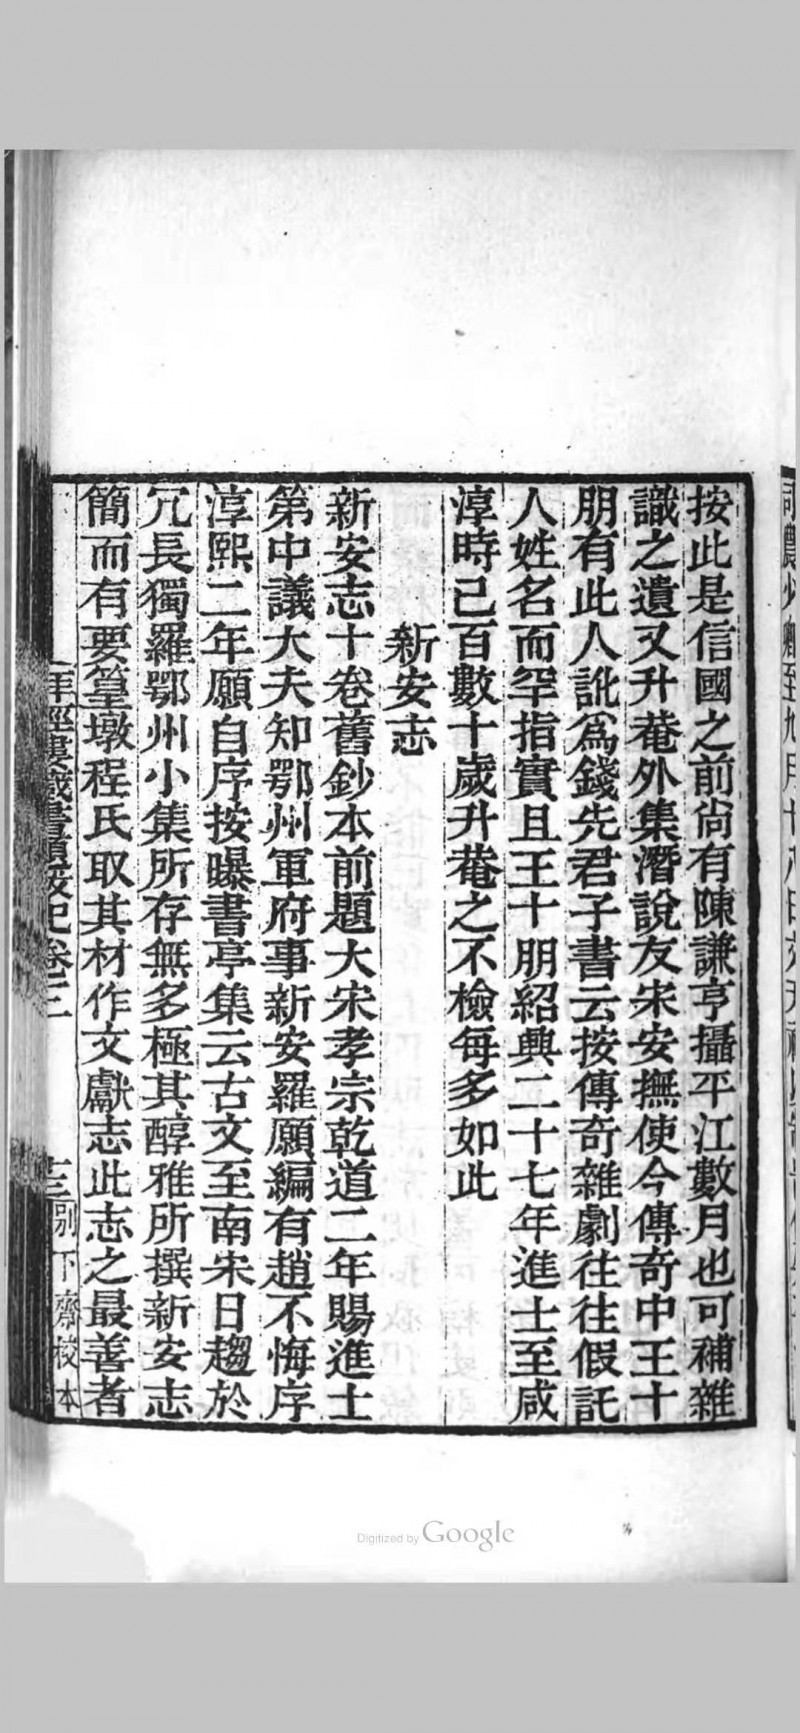 按此是信國之前尚有陳謙亨攝平江數月也可補雜
識之遺又升菴外集潛說友宋安撫使今傳奇中王十
朋有此人訛為錢先君子書云按傳奇雜劇往往假託
人姓名而罕指實且王十朋紹興二十七年進士至咸
淳時已百數十歲升菴之不檢每多如此
新安志
新安志十卷舊鈔本前題大宋孝宗乾道二年賜進士
第中議大夫知鄂州軍府事新安羅願編有趙不悔序
淳熙二年願自序按曝書亭集云古文至南宋日趨於
冗長獨羅鄂州小集所存無多極其醇雅所撰新安志
簡而有要篁墩程氏取其材作文獻志此志之最善者
拜經樓藏書題跋記卷三
十三
別下齋校本
Digitized by Google